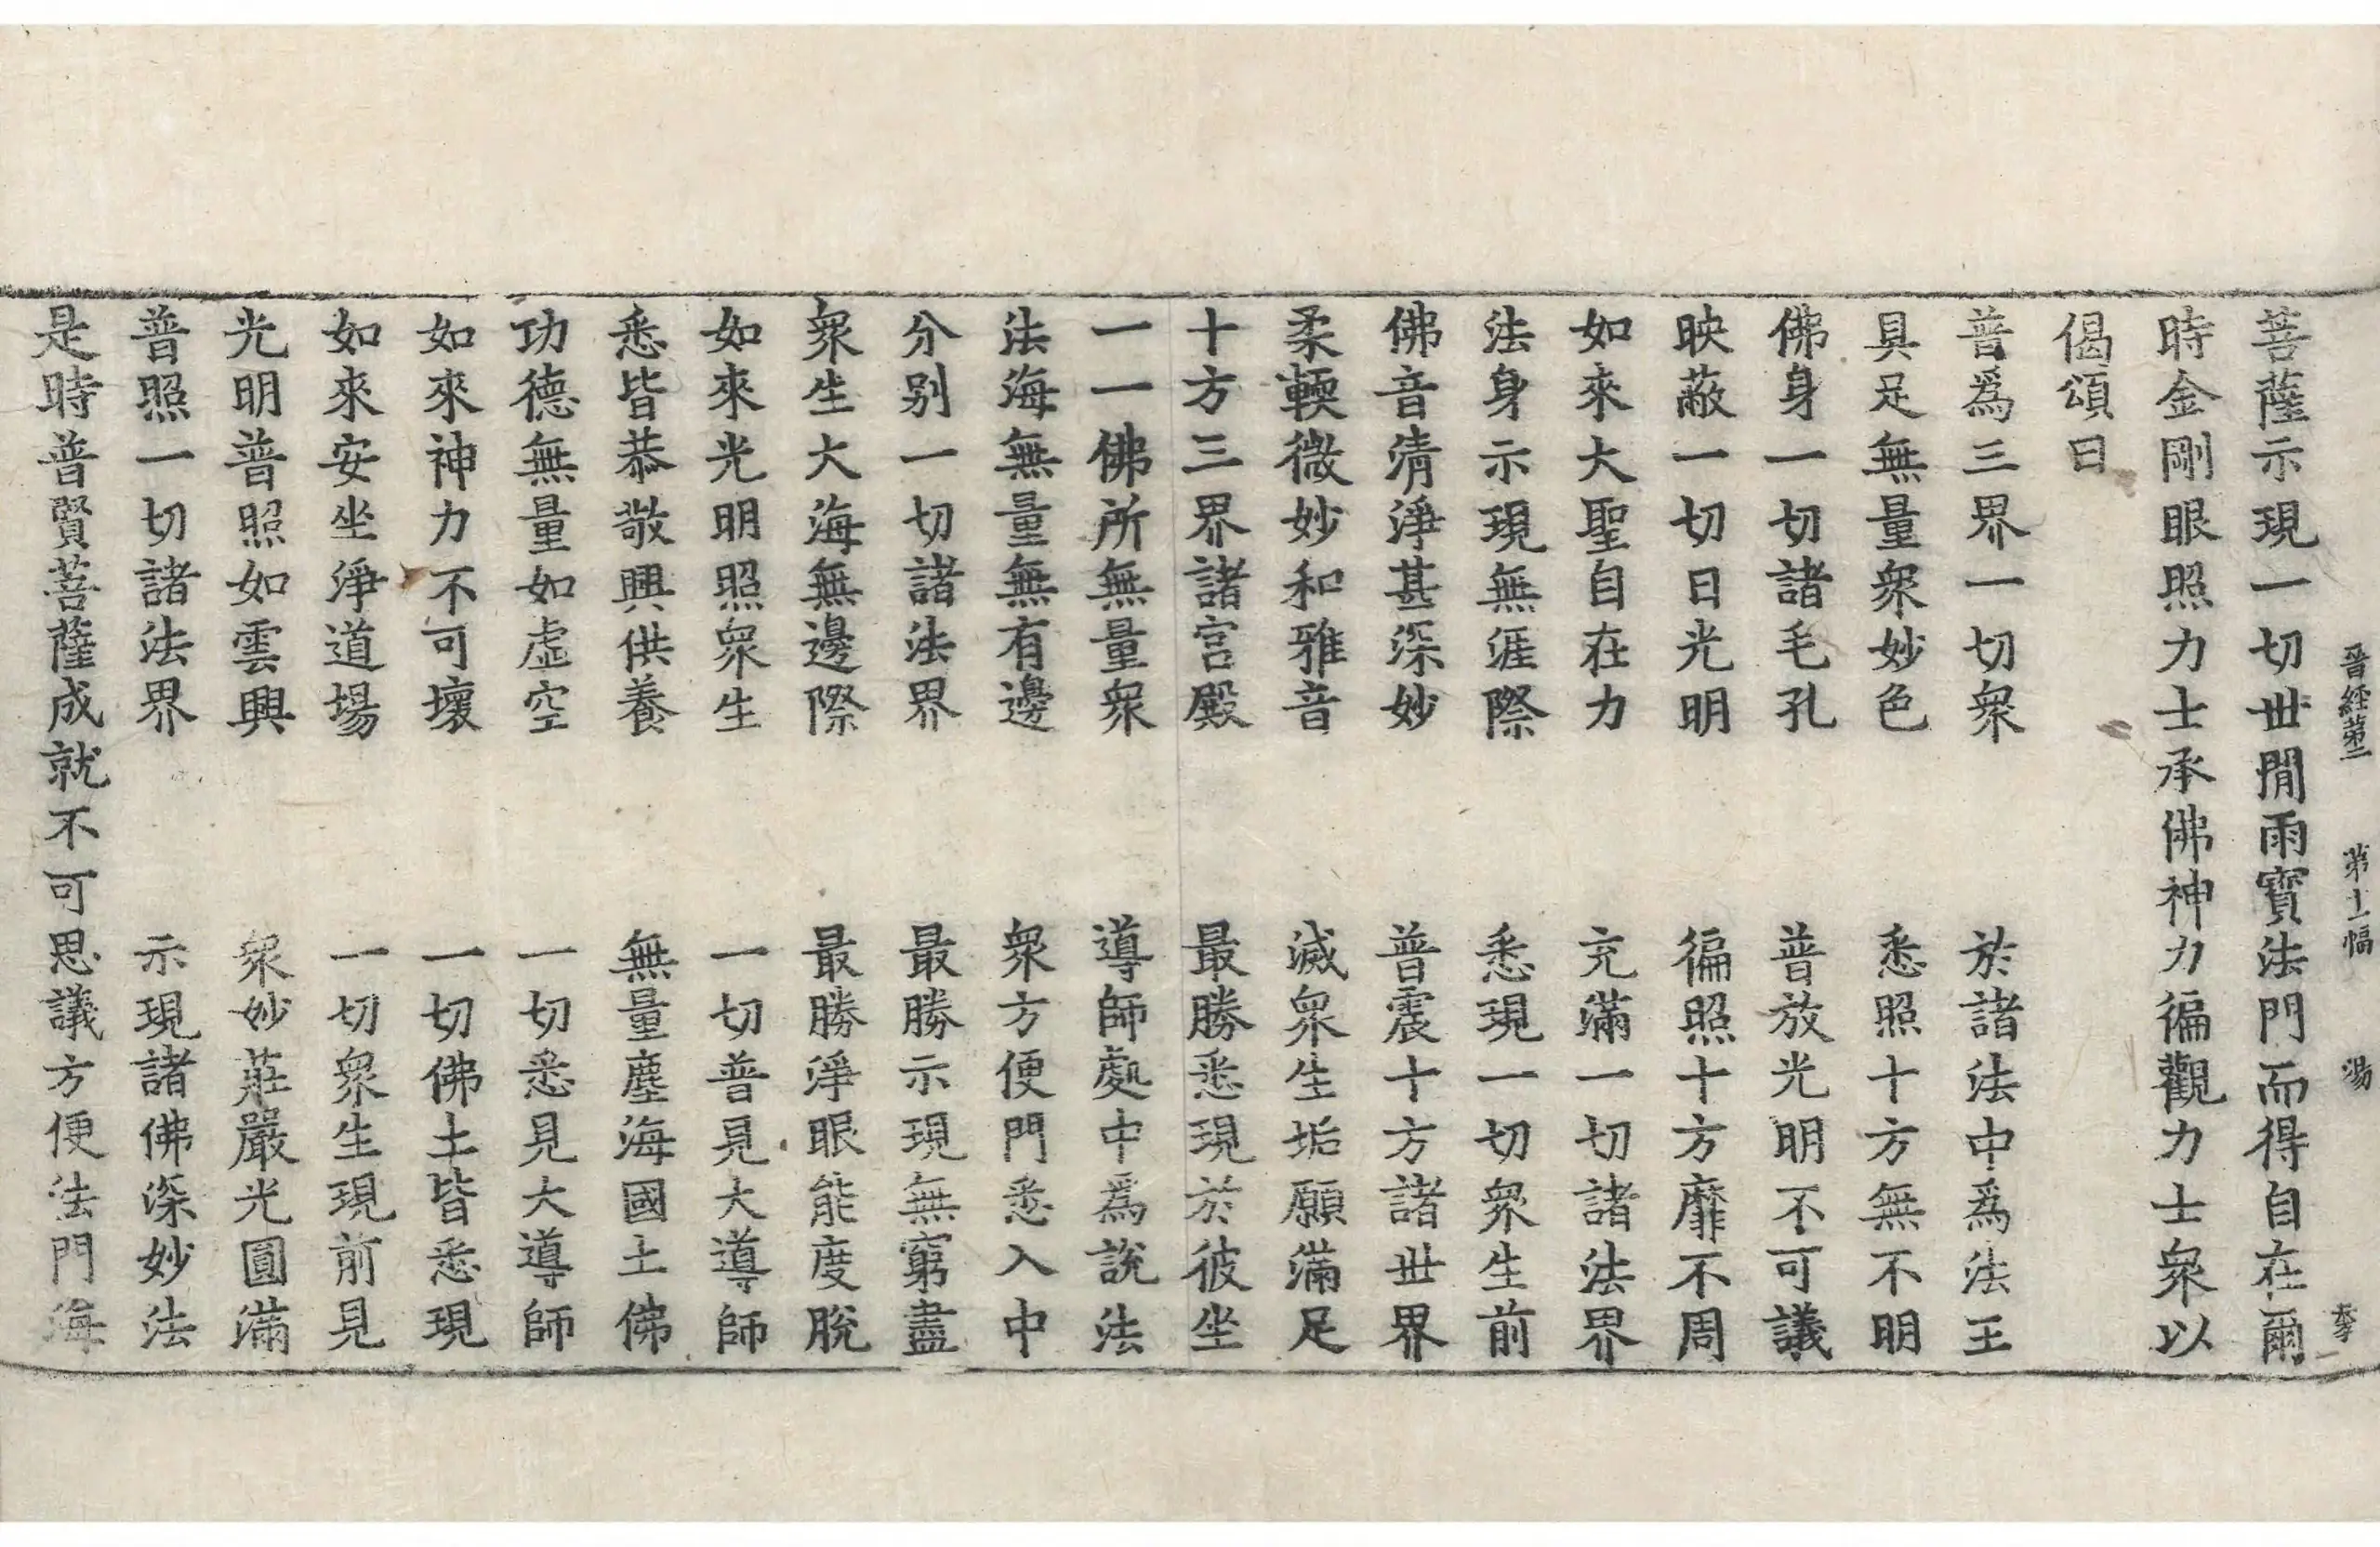 晉經第二 第十一幅 湯
菩薩示現一切世間雨寶法門而得自在爾
時金剛眼照力士承佛神力徧觀力士衆以
偈頌曰
普爲三界一切衆 於諸法中爲法王
具足無量衆妙色 悉照十方無不明
佛身一切諸毛孔 普放光明不可議
映蔽一切日光明 徧照十方靡不周
如來大聖自在力 充滿一切諸法界
法身示現無涯際 悉現一切衆生前
佛音清淨甚深妙 普震十方諸世界
柔輭微妙和雅音 滅衆生垢願滿足
十方三界諸宮殿 最勝悉現於彼坐
一一佛所無量衆 導師處中爲說法
法海無量無有邊 衆方便門悉入中
分別一切諸法界 最勝示現無窮盡
衆生大海無邊際 最勝淨眼能度脫
如來光明照衆生 一切普見大導師
悉皆恭敬興供養 無量塵海國土佛
功德無量如虛空 一切悉見大導師
如來神力不可壞 一切佛土皆悉現
如來安坐淨道場 一切衆生現前見
光明普照如雲興 衆妙莊嚴光圓滿
普照一切諸法界 示現諸佛深妙法
是時普賢菩薩成就不可思議方便法門海